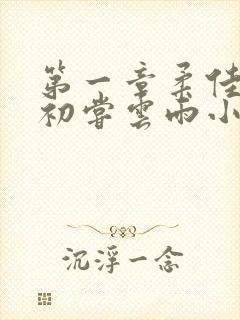 第一章柔佳
初尝云雨小
沉浮一念